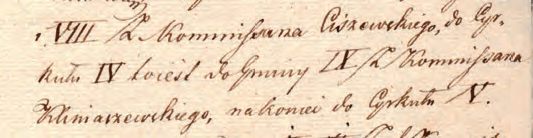 i VIII Z. Kommissarza Ciszewskiego, do Cyr-
kułu IV to iest do Gminy IV Z. Kommissarza
Kliniaszewskiego, nakoniec do Cyrkułu V.